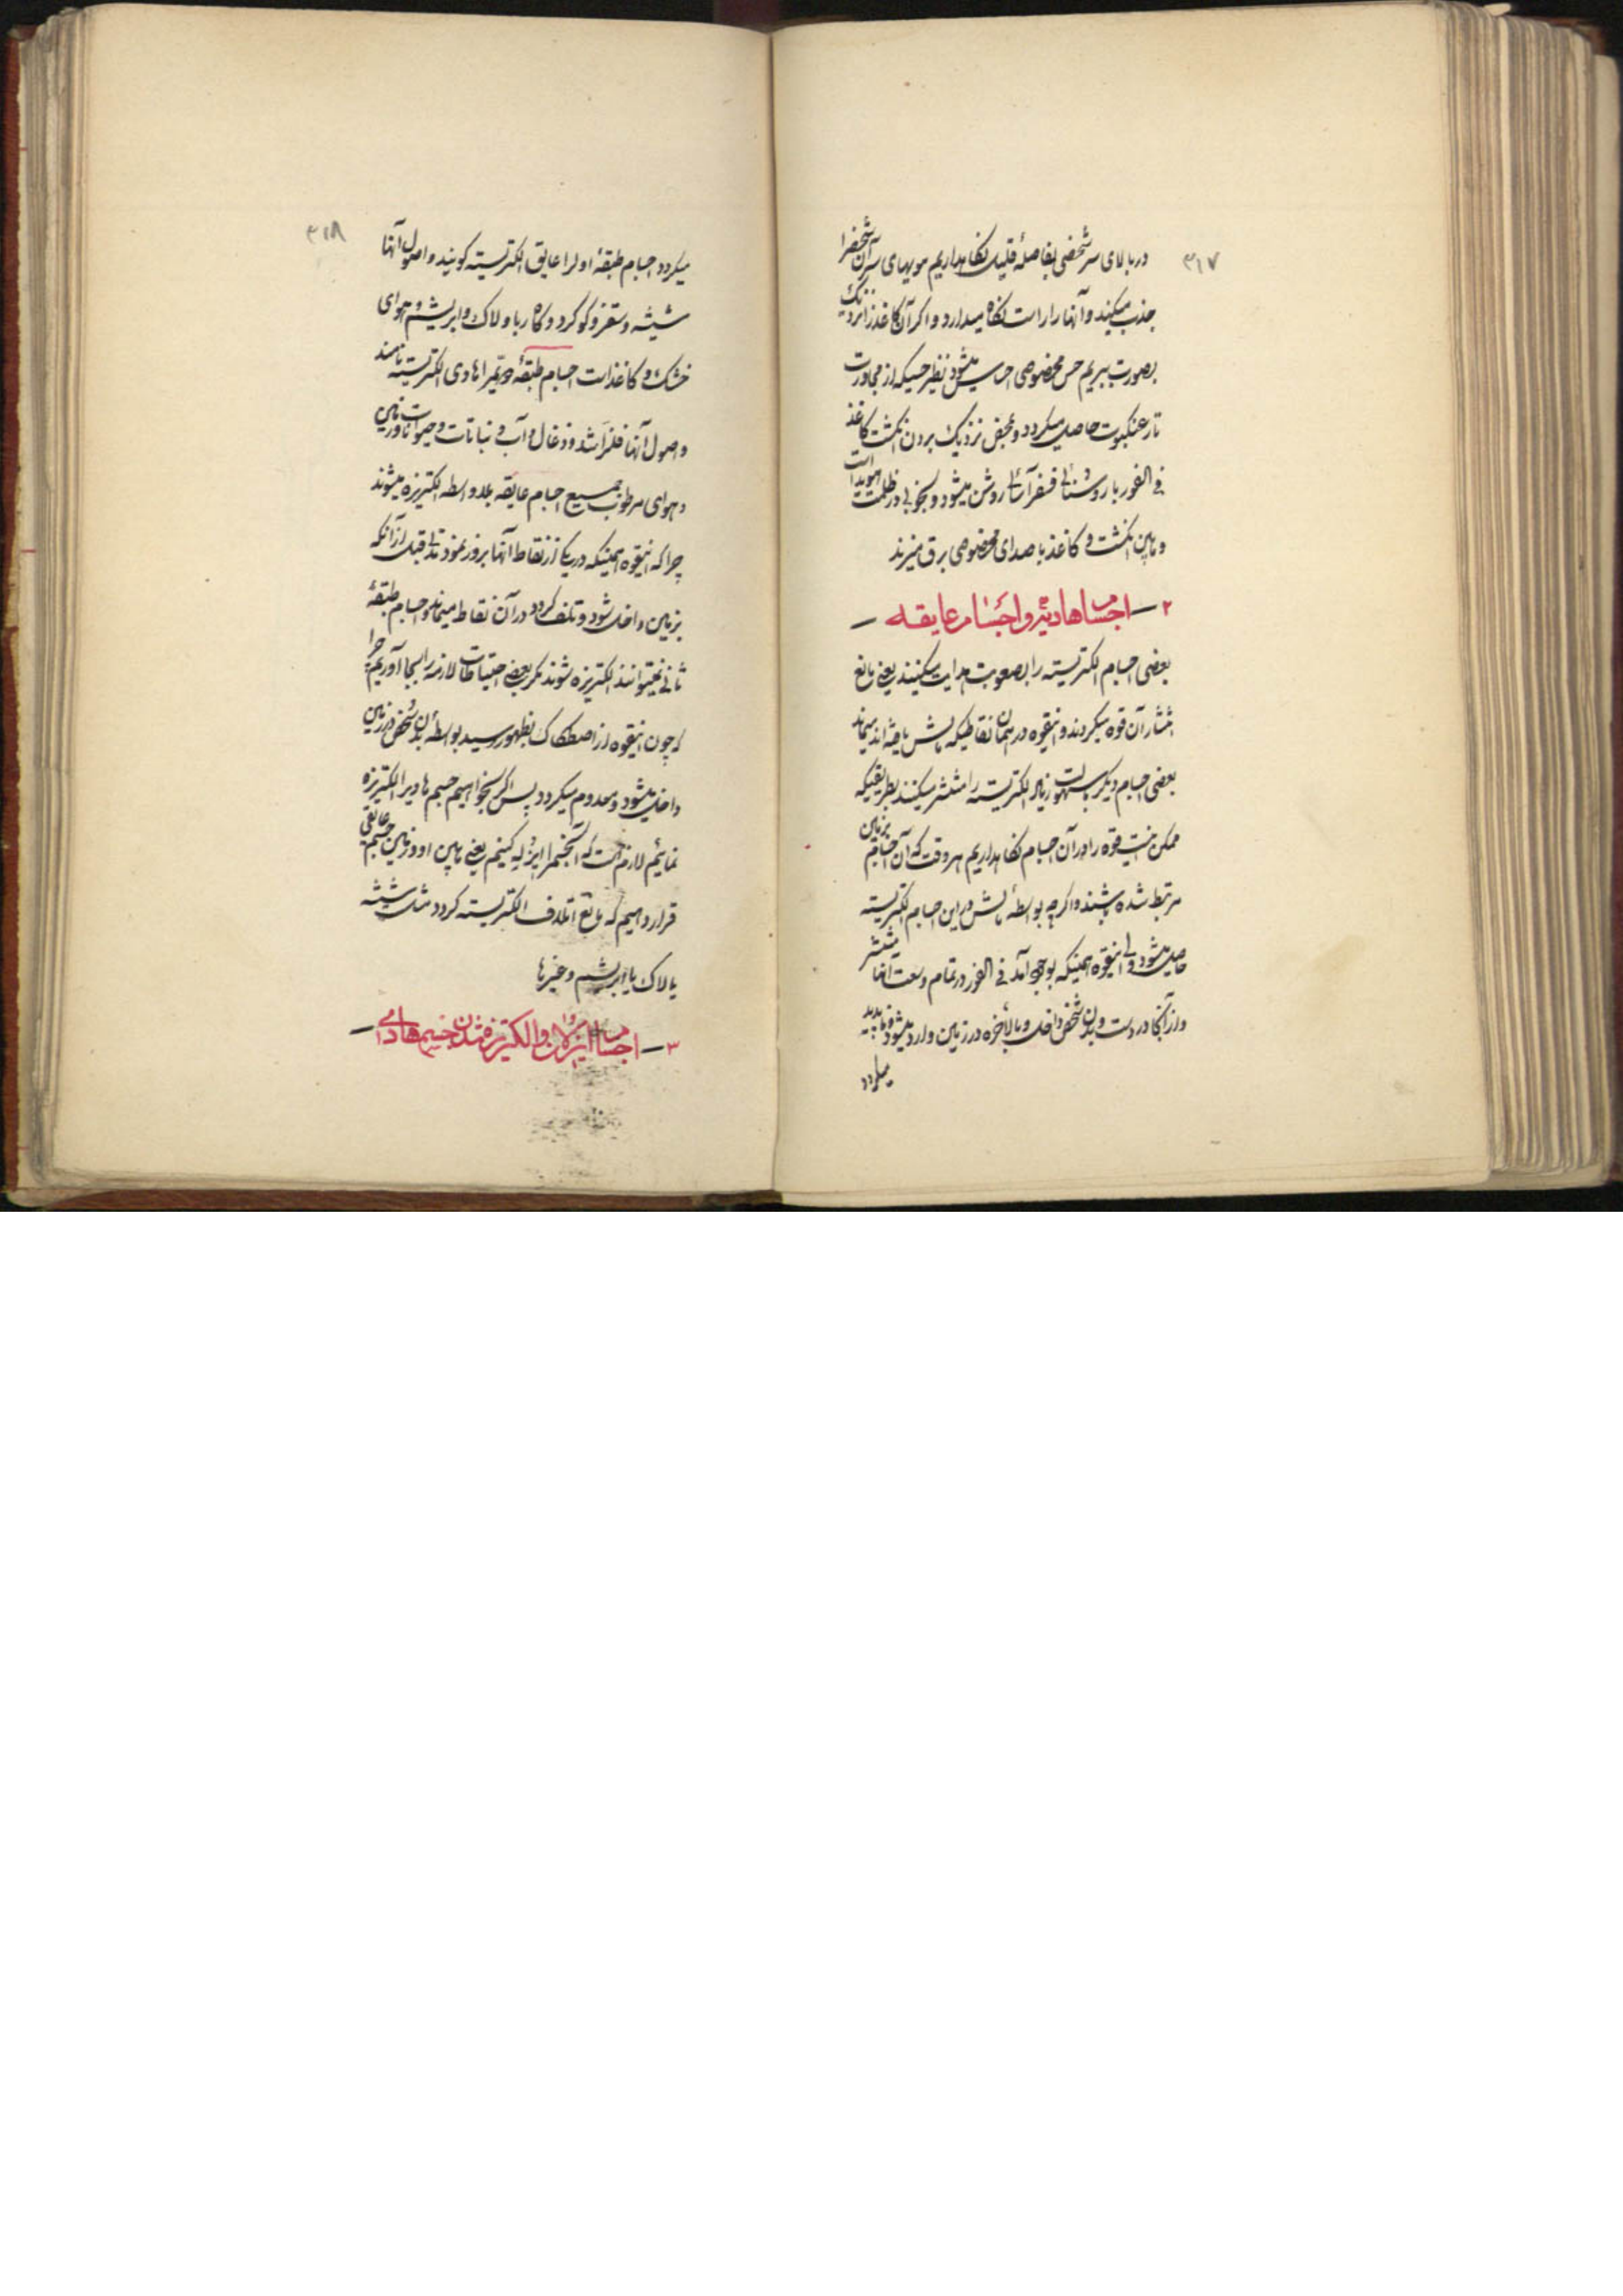 ۳۱۷
در بالای سر شخصی بفاصلهٔ قلیل نگاهداریم مویهای سر آن شخص را
جذب میکند و آنها را راست نگاه میدارد و اگر آن کاغذ را نزدیک
بصورت ببریم حس مخصوصی احساس میشود نظیر حسیکه از مجاورت
تار عنکبوت حاصل میگردد و بمحض نزدیک بردن انگشت کاغذ
فی الفور با روشنائی فسفر آسائی روشن میشود و بخوبی در ظلمت هویدا است
و مابین انگشت و کاغذ با صدای مخصوصی برق میزند
۲ – اجسام هادیه و اجسام عایقه –
بعضی اجسام الکتریسته را بصعوبت هدایت میکنند یعنی مانع
انتشار آن قوه میگردند و اینقوه در همان نقاطیکه مالش یافته‌اند میماند
بعضی اجسام دیگر بسهولت زیاد الکتریسته را منتشر میکنند بطریقیکه
ممکن نیست قوه را در آن اجسام نگاهداریم هر وقت که آن اجسام بزمین
مرتبط شده باشند و اگرچه بواسطهٔ مالش در این اجسام الکتریسته
حاصل میشود ولی اینقوه همینکه بوجود آمد فی الفور در تمام وسعت آنها منتشر
و از آنجا در دست و بدن شخص داخل و بالاخره در زمین وارد میشود و ناپدید
میگردد
۳۱۸
میگردد اجسام طبقهٔ اول را عایق الکتریسته گویند و اصول آنها
شیشه و سقز و گوگرد و کاه ربا و لاک و ابریشم و هوای
خشک و کاغذ است اجسام طبقهٔ دویم را هادی الکتریسته نامند
و اصول آنها فلزات و ذغال و آب و نباتات و حیوانات و زمین
و هوای مرطوب جمیع اجسام عایقه بلاواسطه الکتریزه میشوند
چرا که اینقوه همینکه در یکی از نقاط آنها بروز نمود قبل از آنکه
بزمین داخل شود و تلف گردد در آن نقاط میماند و اجسام طبقهٔ
ثانی نمیتوانند الکتریزه شوند مگر بعضی احتیاطات لازمه را بجا آوریم چرا
که چون اینقوه از اصطکاک بظهور رسید بواسطه بدن شخص در زمین
داخل میشود و معدوم میگردد پس اگر بخواهیم جسم هادیرا الکتریزه
نمائیم لازم است که آنجسم را ایزوله کنیم یعنی مابین او و زمین جسم عایقی
قرار دهیم که مانع اتلاف الکتریسته گردد مثل شیشه
یا لاک یا ابریشم و غیرها
۳ – اجسام ایزولان و الکتریزه شدن جسم هادی –